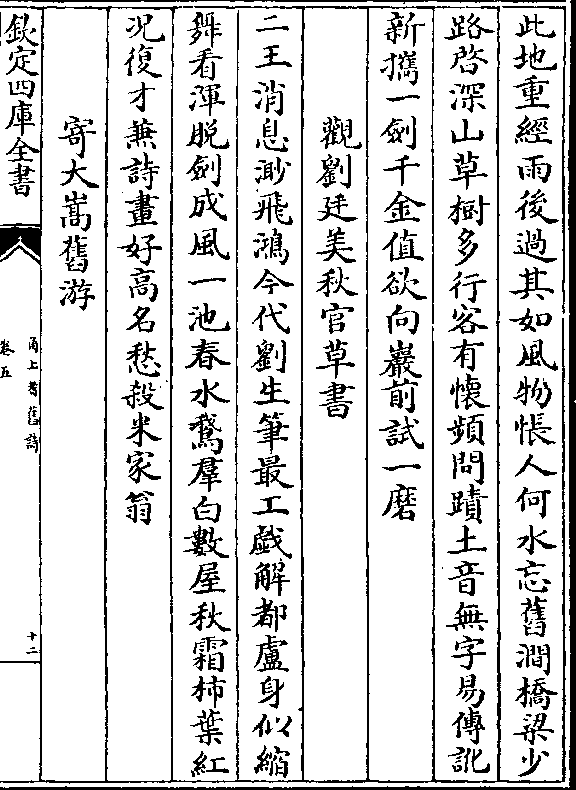 此地重經雨後過其如風物悵人何水忘舊澗橋梁少
路啓深山草樹多行客有懷頻問蹟土音無字易傳訛
新攜一劍千金值欲向巖前試一磨
觀劉廷美秋官草書
二王消息渺飛鴻今代劉生筆最工戲解都盧身似縮
舞看渾脫劍成風一池春水鵞羣白數屋秋霜柿葉紅
况復才兼詩畫好高名愁殺米家翁
寄大嵩舊游
欽定四庫全書
甬上耆舊詩
卷五
十二